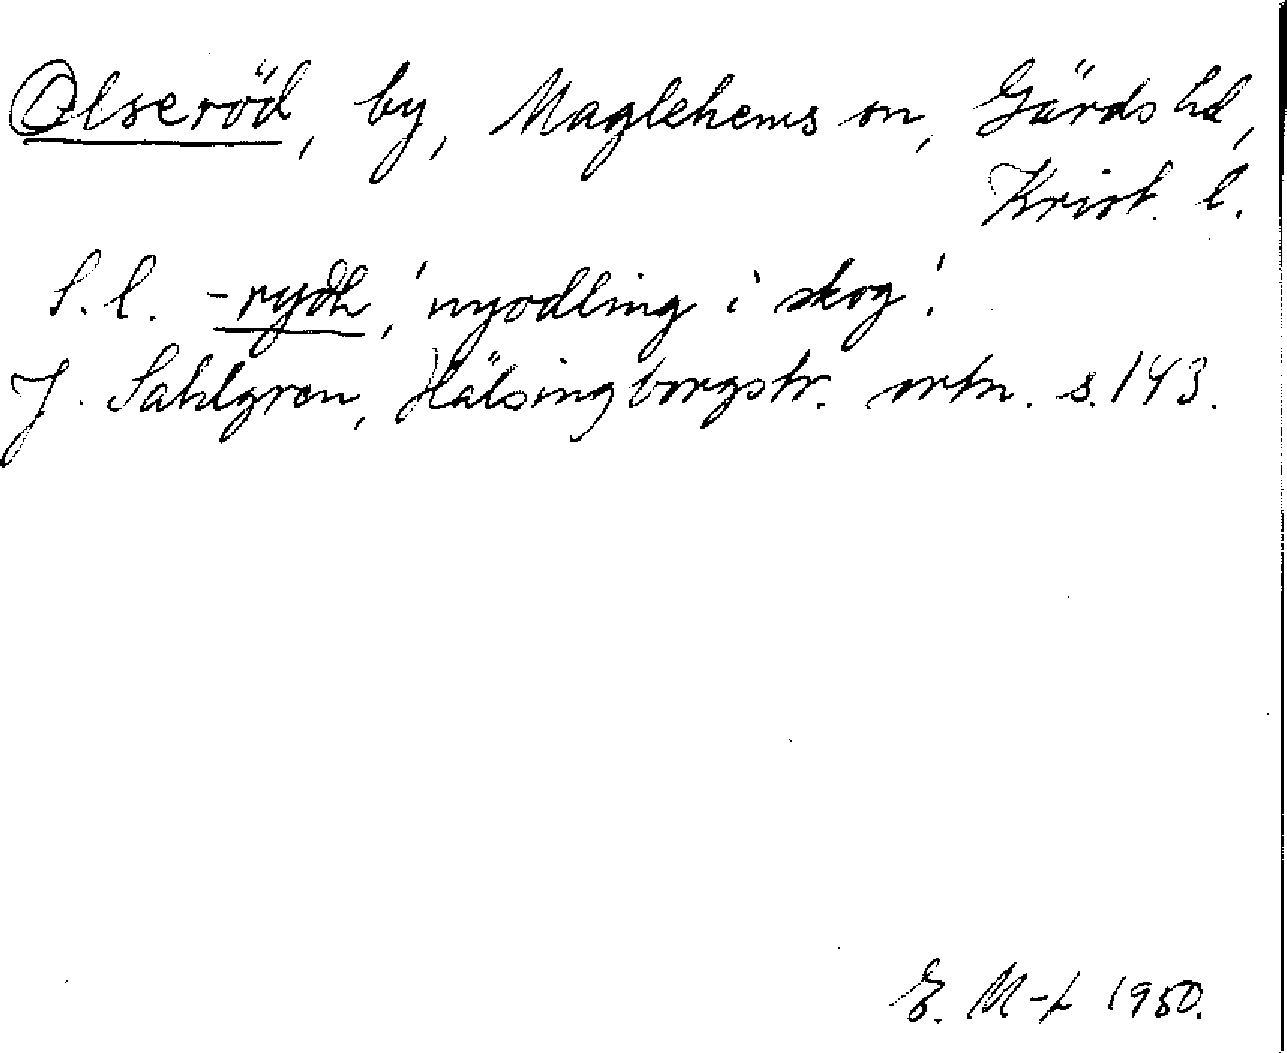 Olseröd, by, Maglehems sn, Gärds hd,
Krist. l.
S.l. -rydh, 'nyodling i skog'.
J. Sahlgren, Hälsingborgstr. ortn. s. 143.
E. M-L 1950.